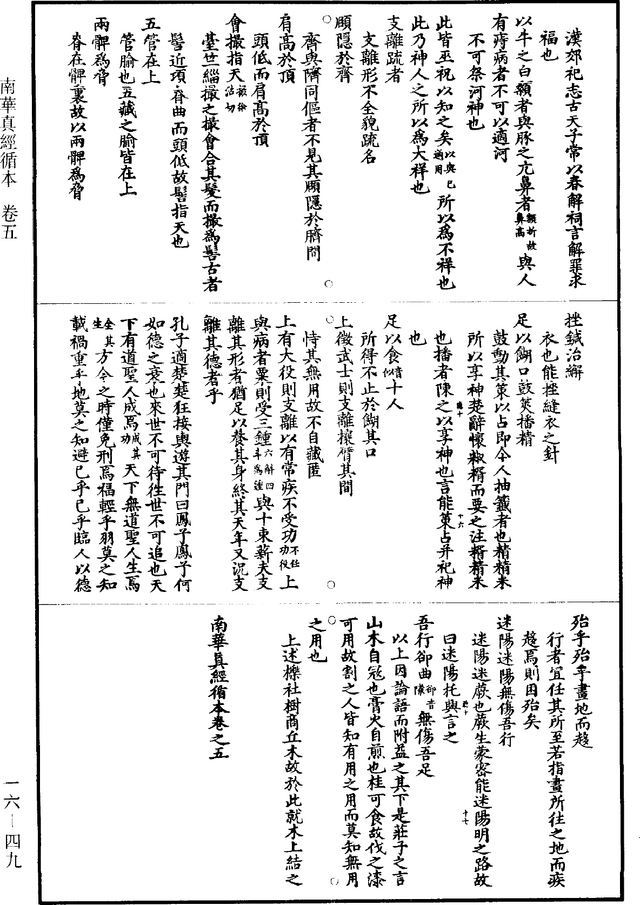 漢郊祀志古天子常以春解祠言解罪求
福也
以牛之白顙者與豚之亢鼻者額折故鼻高與人
有痔病者不可以適河
不可祭河神也
此皆巫祝以知之矣以與已通用所以為不祥也
此乃神人之所以為大祥也
支離疏者
支離形不全貌疏名
頤隱於齊
齊與臍同傴者不見其頤隱於臍間
肩高於頂
頭低而肩高於頂
會撮指天
臺笠緇撮之撮會合其髮而撮為髻古者
髻近項脊曲而頭低故髻指天也
五管在上
管腧也五藏之腧皆在上
兩髀為脅
脊在髀裏故以兩髀為脅
挫鍼治繲
衣也能挫縫衣之針
足以餬口鼓筴播精
鼓動其筴以占即今人抽籤者也精精米
所以享神楚辭懷椒糈而要之注糈精米
也播者陳之以享神也言能筴占并祀神
也
足以食音似十人
所得不止於餬其口
上徵武士則支離攘臂其間
恃其無用故不自藏匿
上有大役則支離以有常疾不受功不任功役上
與病者粟則受三鍾六斛四斗為鍾與十束薪夫支
離其形者猶足以養其身終其天年又況支
離其德者乎
孔子適楚楚狂接輿遊其門曰鳳子鳳子何
如德之衰也來世不可待往世不可追也天
下有道聖人成焉成其功天下無道聖人生焉
全其生方今之時僅免刑焉福輕乎羽莫之知
載禍重乎地莫之知避已乎已乎臨人以德
殆乎殆乎畫地而趨
行者宜任其所至若指畫所往之地而疾
趨焉則困殆矣
迷陽迷陽無傷吾行
迷陽迷蕨也蕨生蒙密能迷陽明之路故
曰迷陽托興言之
吾行卻曲卻音隙無傷吾足
以上因論語而附益之其下是莊子之言
山木自寇也膏火自煎也桂可食故伐之漆
可用故割之人皆知有用之用而莫知無用
之用也
上述櫟社樹商丘木故於此就木上結之
南華真經循本卷之五
南華真經循本 卷五
一六—四九